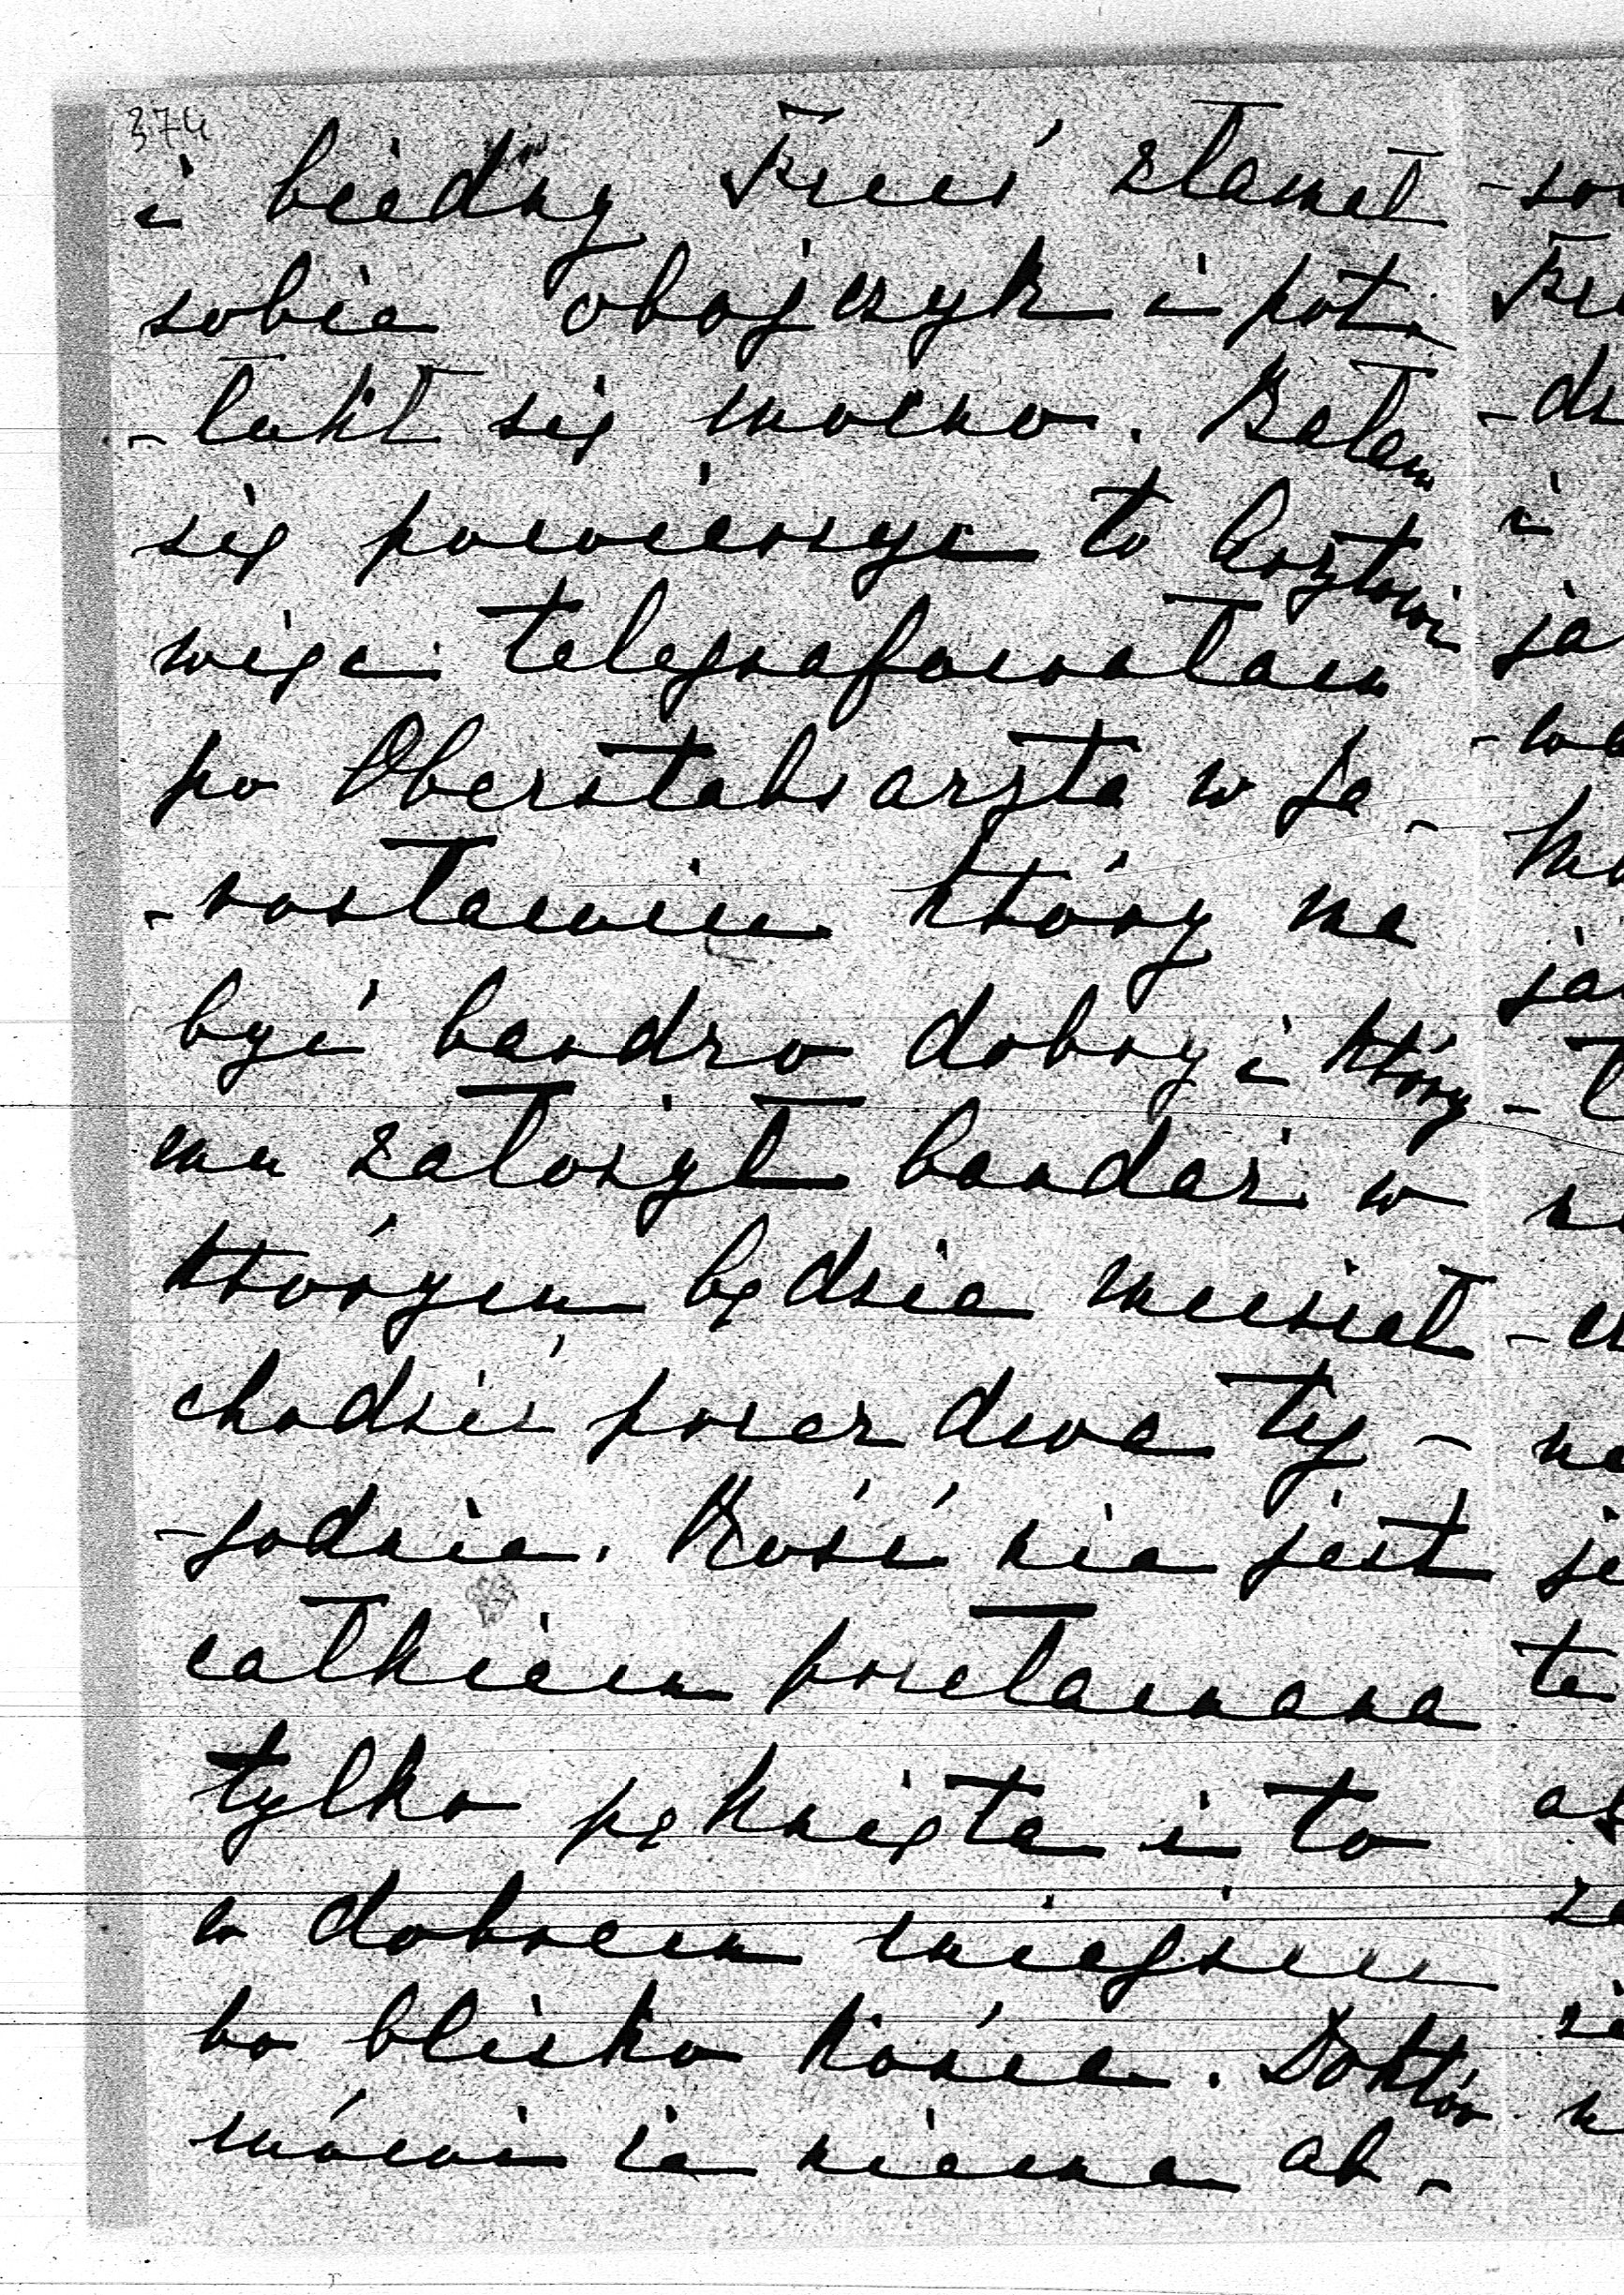 374
i biedny Fruś złamał
sobie obojczyk i pot-
-łukł się mocno. Bałam
się powierzyć to
więc telegrafowałam
po Oberstabsarzta w Ja-
-rosławiu który ma
być bardzo dobry i który
mu założył bandaż w
którym będzie musiał
chodzić przez dwa ty-
-godnie. Kość nie jest
całkiem przełamana
tylko pęknięta i to
w dobrem miejscu
bo blisko końca. Doktór
mówi że niema ab-